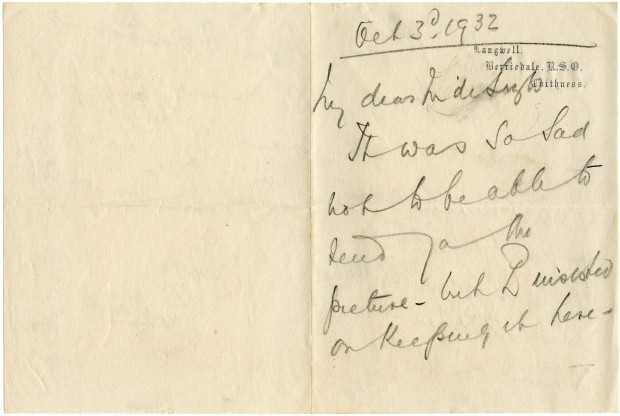 Oct 3d. 1932
Langwell,
Berriedale, R.S.O.
Caithness.
My dear M de
It was so sad
not to be able to
the
picture - but P insisted
on keeping it here -